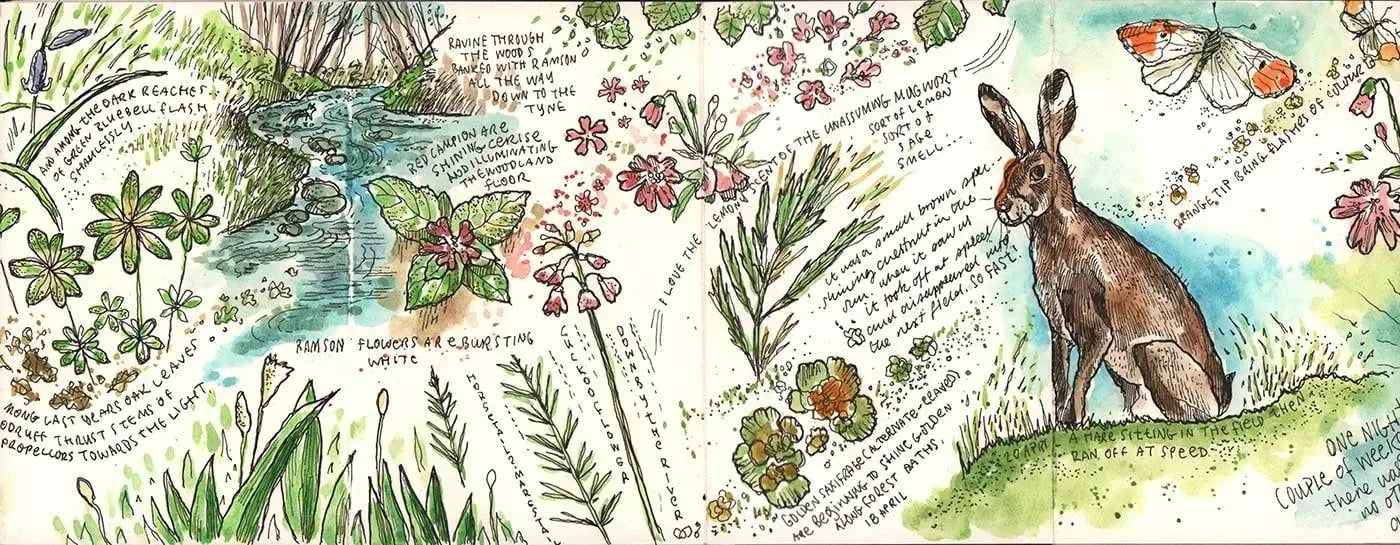 AND AMONG THE DARK REACHES
OF GREEN BLUEBELL FLASH
SHAMELESSLY
RAVINE THROUGH
THE WOODS
BANKED WITH RAMSON
ALL THE WAY
DOWN TO THE
TYNE
RED CAMPION ARE
SHINING CERISE
AND ILLUMINATING
THE WOODLAND
FLOOR
MONG LAST YEARS OAK LEAVES
ODRUFF THRUST STEMS OF
PROPELLORS TOWARDS THE LIGHT
RAMSON FLOWERS ARE BURSTING
WHITE
HORSETAIL MARESTAIL
CUCKOOFLOWER
DOWN BY THE RIVER
I LOVE THE
LEMONY
OF THE UNASSUMING MUGWORT
SORT OF LEMON
SORT OF
SAGE
SMELL...
it was a small brown spec
shining chestnut in the
sun when it saw us
it took off at speed
and disappeared into
the next field. So FAST!
GOLDEN SAXIFRAGE (ALTERNATE-LEAVED)
ARE BEGINNING TO SHINE GOLDEN
ALONG FOREST PATHS.
18 APRIL
ORANGE TIP BRING FLASHES OF COLOUR
20 APRIL A HARE SITTING IN THE FIELD THEN
RAN OFF AT SPEED
ONE NIGH
COUPLE OF WEE
there w
no